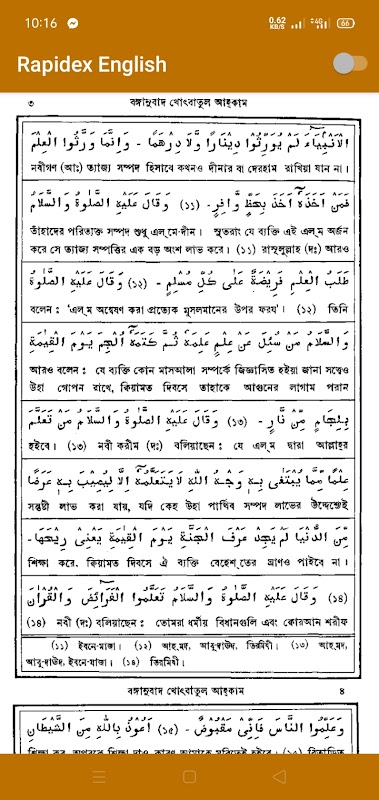 10:16 0.62 KB/S 4G 66
Rapidex English
৩ বঙ্গানুবাদ খোৎবাতুল আহ্কাম
الْاَنْبِيَاءَ لَمْ يُوَرِّثُوْا دِيْنَارًا وَّلَا دِرْهَمًا - وَاِنَّمَا وَرَّثُوا الْعِلْمَ
নবীগণ (আঃ) ত্যাজ্য সম্পদ হিসাবে কখনও দীনার বা দেরহাম রাখিয়া যান না।
فَمَنْ اَخَذَهٗ اَخَذَ بِحَظٍّ وَّافِرٍ - (১১) وَقَالَ عَلَيْهِ الصَّلٰوةُ وَالسَّلَامُ
তাঁহাদের পরিত্যক্ত সম্পদ শুধু এল্‌মে-দীন। সুতরাং যে ব্যক্তি এই এল্‌ম অর্জন
করে সে ত্যাজ্য সম্পত্তির এক বড় অংশ লাভ করে। (১১) রাসূলুল্লাহ্ (দঃ) আরও
طَلَبُ الْعِلْمِ فَرِيْضَةٌ عَلٰى كُلِّ مُسْلِمٍ - (১২) وَقَالَ عَلَيْهِ الصَّلٰوةُ
বলেন : 'এল্‌ম অন্বেষণ করা প্রত্যেক মুসলমানের উপর ফরয'। (১২) তিনি
وَالسَّلَامُ مَنْ سُئِلَ عَنْ عِلْمٍ عَلِمَهٗ ثُمَّ كَتَمَهٗ اُلْجِمَ يَوْمَ الْقِيٰمَةِ
আরও বলেন : যে ব্যক্তি কোন মাসআলা সম্পর্কে জিজ্ঞাসিত হইয়া জানা সত্ত্বেও
উহা গোপন রাখে, কিয়ামত দিবসে তাহাকে আগুনের লাগাম পরান
بِلِجَامٍ مِّنْ نَّارٍ - (১৩) وَقَالَ عَلَيْهِ الصَّلٰوةُ وَالسَّلَامُ مَنْ تَعَلَّمَ
হইবে। (১৩) নবী করীম (দঃ) বলিয়াছেন : যে এল্‌ম দ্বারা আল্লাহ্‌র
عِلْمًا مِّمَّا يُبْتَغٰى بِهٖ وَجْهُ اللّٰهِ لَايَتَعَلَّمُهٗ اِلَّا لِيُصِيْبَ بِهٖ عَرَضًا
সন্তুষ্টী লাভ করা যায়, যদি কেহ উহা পার্থিব সম্পদ লাভের উদ্দেশ্যেই
مِّنَ الدُّنْيَا لَمْ يَجِدْ عَرْفَ الْجَنَّةِ يَوْمَ الْقِيٰمَةِ يَعْنِىْ رِيْحَهَا -
শিক্ষা করে, ক্বিয়ামত দিবসে ঐ ব্যক্তি বেহেশ্‌তের ঘ্রাণও পাইবে না।
(১৪) وَقَالَ عَلَيْهِ الصَّلٰوةُ وَالسَّلَامُ تَعَلَّمُوا الْفَرَائِضَ وَالْقُرْاٰنَ
(১৪) নবী (দঃ) বলিয়াছেন : তোমরা ধর্মীয় বিধানগুলি এবং কোরআন শরীফ
(১১) ইবনে-মাজা। (১২) আহ্‌মদ, আবু-দাউদ, তিরমিযী। (১৩) আহ্‌মদ,
আবু-দাউদ, ইবনে-মাজা। (১৪) তিরমিযী।
বঙ্গানুবাদ খোৎবাতুল আহ্কাম ৪
وَعَلِّمُوا النَّاسَ فَاِنِّىْ مَقْبُوْضٌ - (১৫) اَعُوْذُ بِاللّٰهِ مِنَ الشَّيْطَانِ